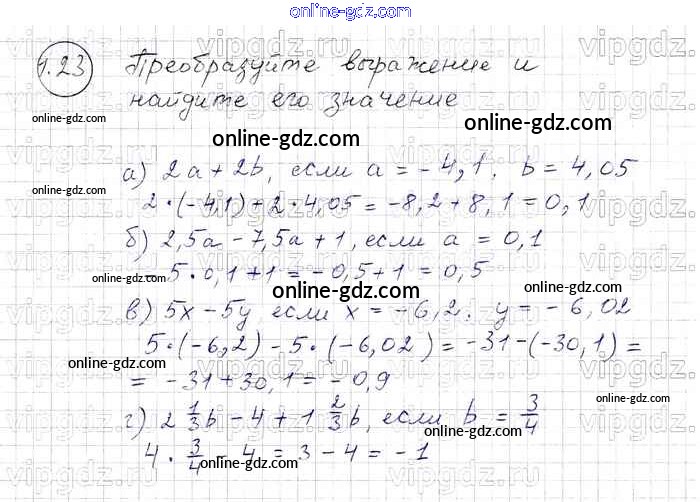 online-gdz.com
1.23 Преобразуйте выражение и
найдите его значение
online-gdz.com
online-gdz.com
а) 2a + 2b, если a = -4,1. b = 4,05
online-gdz.com
2·(-4,1)+2·4,05 = -8,2+8,1 = 0,1
online-gdz.com
б) 2,5a - 7,5a + 1, если a = 0,1
online-gdz.com
- 5·0,1+1 = -0,5+1 = 0,5
online-gdz.com
в) 5x - 5y если x = -6,2. y = -6,02
online-gdz.com
5·(-6,2) - 5·(-6,02) = -31-(-30,1) =
online-gdz.com
= -31+30,1 = -0,9
online-gdz.com
г) 2 1/3 b - 4 + 1 2/3 b, если b = 3/4
online-gdz.com
4 · 3/4 - 4 = 3 - 4 = -1
online-gdz.com